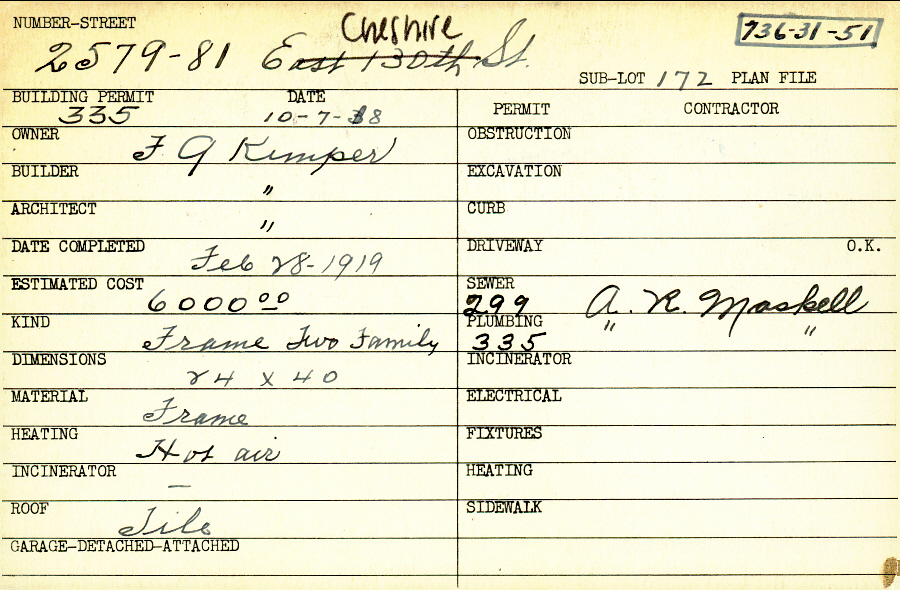 NUMBER-STREET
Cheshire
736-31-51
2579-81 East 130th St.
SUB-LOT 172 PLAN FILE
BUILDING PERMIT DATE
335 10-7-18
PERMIT CONTRACTOR
OWNER F G Kimper
OBSTRUCTION
BUILDER "
EXCAVATION
ARCHITECT "
CURB
DATE COMPLETED Feb 28-1919
DRIVEWAY O.K.
ESTIMATED COST 6000 00
SEWER 299 A. R. Maskell
KIND Frame Two Family
PLUMBING 335 " "
DIMENSIONS 24 x 40
INCINERATOR
MATERIAL Frame
ELECTRICAL
HEATING Hot air
FIXTURES
INCINERATOR —
HEATING
ROOF Tile
SIDEWALK
GARAGE-DETACHED-ATTACHED